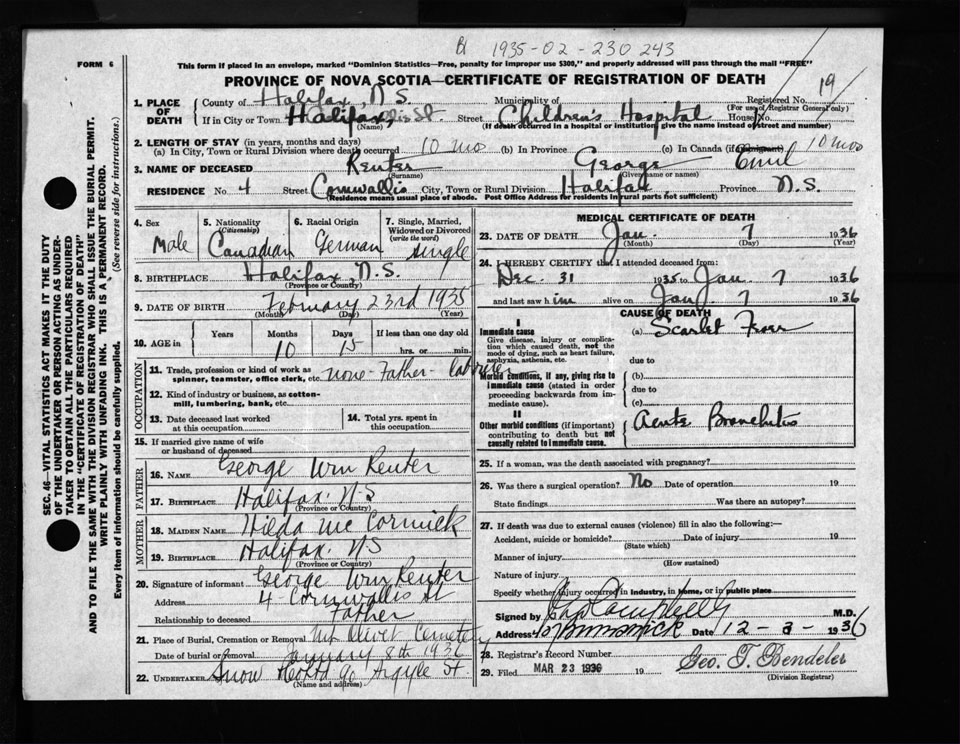 1935-02-230 243
FORM 6
This form if placed in an envelope, marked "Dominion Statistics—Free, penalty for improper use $300," and properly addressed will pass through the mail "FREE"
PROVINCE OF NOVA SCOTIA—CERTIFICATE OF REGISTRATION OF DEATH
19
1. PLACE OF DEATH County of Halifax, N.S. Municipality of Registered No. (For use of Registrar General only)
If in City or Town Halifax (Name) Street Children's Hospital House No.
(If death occurred in a hospital or institution give name instead of street and number)
2. LENGTH OF STAY (in years, months and days)
(a) In City, Town or Rural Division where death occurred 10 mo (b) In Province (c) In Canada (if immigrant) 10 mos
3. NAME OF DECEASED Reuter (Surname) George Emil (Given name or names)
RESIDENCE No. 4 Street Cornwallis City, Town or Rural Division Halifax Province N.S.
(Residence means usual place of abode. Post Office Address for residents in rural parts not sufficient)
4. Sex Male
5. Nationality (Citizenship) Canadian
6. Racial Origin German
7. Single, Married, Widowed or Divorced (write the word) single
8. BIRTHPLACE Halifax, N.S. (Province or Country)
9. DATE OF BIRTH February 23rd 1935 (Month) (Day) (Year)
10. AGE in Years Months Days If less than one day old
10 15 hrs. or min.
OCCUPATION
11. Trade, profession or kind of work as spinner, teamster, office clerk, etc. none - Father - labourer
12. Kind of industry or business, as cotton-mill, lumbering, bank, etc.
13. Date deceased last worked at this occupation
14. Total yrs. spent in this occupation
15. If married give name of wife or husband of deceased
FATHER
16. NAME George Wm Reuter
17. BIRTHPLACE Halifax. N.S (Province or Country)
MOTHER
18. MAIDEN NAME Hilda McCormick
19. BIRTHPLACE Halifax. N.S (Province or Country)
20. Signature of informant George Wm Reuter
Address 4 Cornwallis St
Relationship to deceased Father
21. Place of Burial, Cremation or Removal Mt Olivet Cemetery
Date of burial or removal January 8th 1936
22. UNDERTAKER Snow 90 Argyle St. (Name and address)
MEDICAL CERTIFICATE OF DEATH
23. DATE OF DEATH Jan. 7 1936 (Month) (Day) (Year)
24. I HEREBY CERTIFY that I attended deceased from:
Dec. 31 1935 to Jan 7 1936
and last saw him alive on Jan 7 1936
CAUSE OF DEATH
I
Immediate cause
Give disease, injury or complication which caused death, not the mode of dying, such as heart failure, asphyxia, asthenia, etc.
(a) Scarlet Fever
due to
Morbid conditions, if any, giving rise to immediate cause (stated in order proceeding backwards from immediate cause).
(b)
due to
(c)
II
Other morbid conditions (if important) contributing to death but not causally related to immediate cause.
Acute Bronchitis
25. If a woman, was the death associated with pregnancy?
26. Was there a surgical operation? No Date of operation 19
State findings Was there an autopsy?
27. If death was due to external causes (violence) fill in also the following:—
Accident, suicide or homicide? (State which) Date of injury 19
Manner of injury (How sustained)
Nature of injury
Specify whether injury occurred in industry, in home, or in public place
Signed by Campbell M.D.
Address Brunswick Date 12-3-1936
28. Registrar's Record Number
29. Filed MAR 23 1936 19 Geo. T. Bendeler (Division Registrar)
SEC. 46—VITAL STATISTICS ACT MAKES IT THE DUTY
OF THE UNDERTAKER OR PERSON ACTING AS UNDER-
TAKER TO OBTAIN ALL THE PARTICULARS REQUIRED
IN THE "CERTIFICATE OF REGISTRATION OF DEATH"
AND TO FILE THE SAME WITH THE DIVISION REGISTRAR WHO SHALL ISSUE THE BURIAL PERMIT.
WRITE PLAINLY WITH UNFADING INK. THIS IS A PERMANENT RECORD.
Every item of information should be carefully supplied. (See reverse side for instructions.)